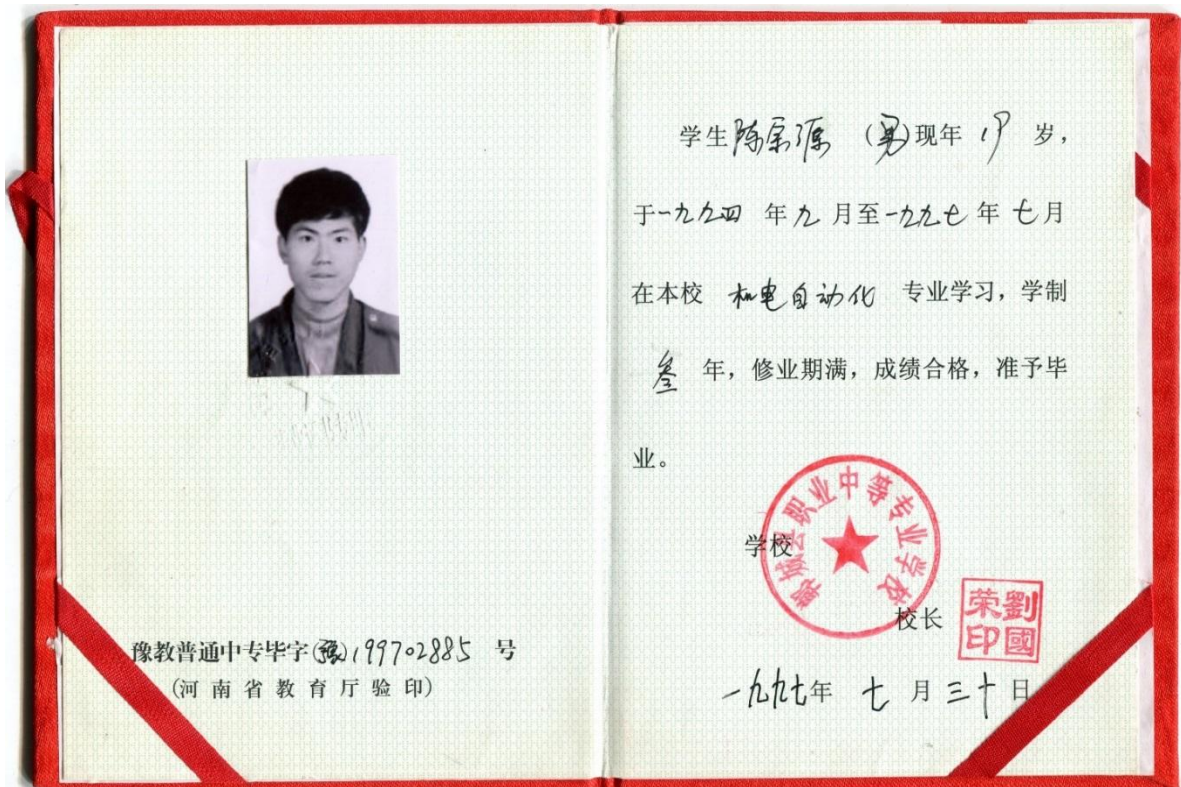 豫教普通中专毕字(豫)199702885 号
(河南省教育厅验印)
学生陈宗源 (男)现年 19 岁,
于一九九四 年 九 月至一九九七 年 七 月
在本校 机电自动化 专业学习,学制
叁 年,修业期满,成绩合格,准予毕
业。
郸城县职业中等专业学校
学校
校长
劉國荣印
一九九七年 七 月 三十 日